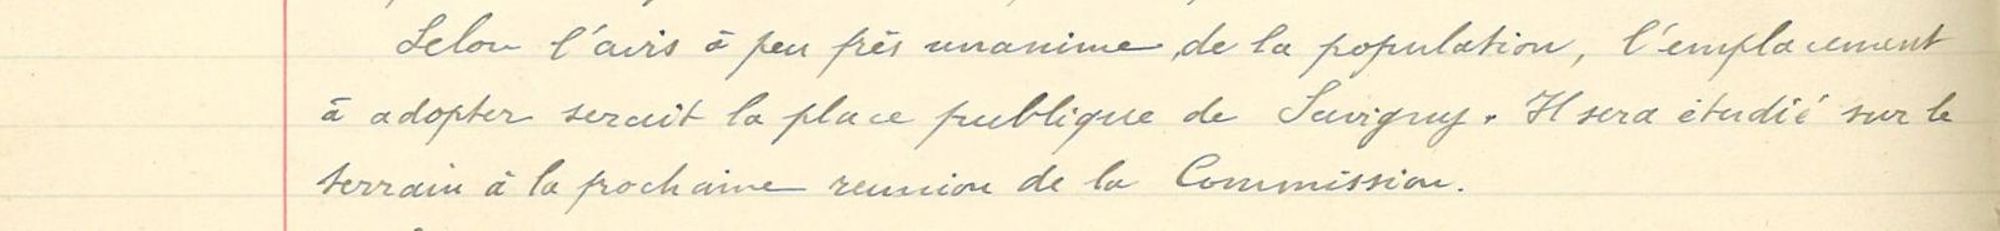 Selon l'avis à peu près unanime de la population, l'emplacement
à adopter serait la place publique de Savigny. Il sera étudié sur le
terrain à la prochaine reunion de la Commission.